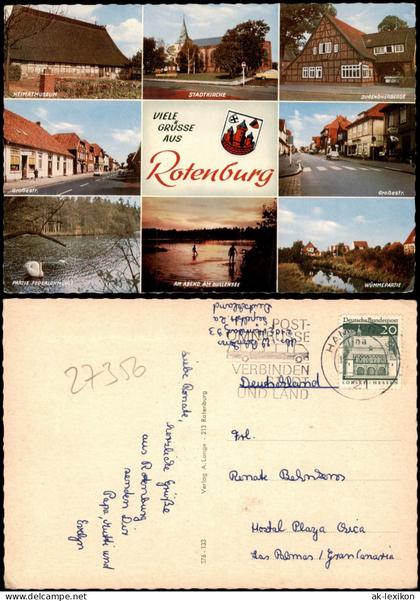 HEIMATMUSEUM
STADTKIRCHE
JUGENDHERBERGE
VIELE
GRÜSSE
AUS
Rotenburg
Großestr.
Großestr.
PARTIE FEDERLOHMÜHLE
AM ABEND AM BULLENSEE
WÜMMEPARTIE
27356
Liebe Renate,
herzliche Grüße
aus Rotenburg
senden Dir
Papa, Mutti und
Evelyn
576 - 133
Verlag A. Lange - 213 Rotenburg
Deutschland
POST-
VERBINDEN
UND LAND
Deutsche Bundespost
20
LORSCH · HESSEN
Deutschland
Frl.
Renate
Hostal Plaza
Las Palmas / Gran Canaria
© ak-lexikon.com